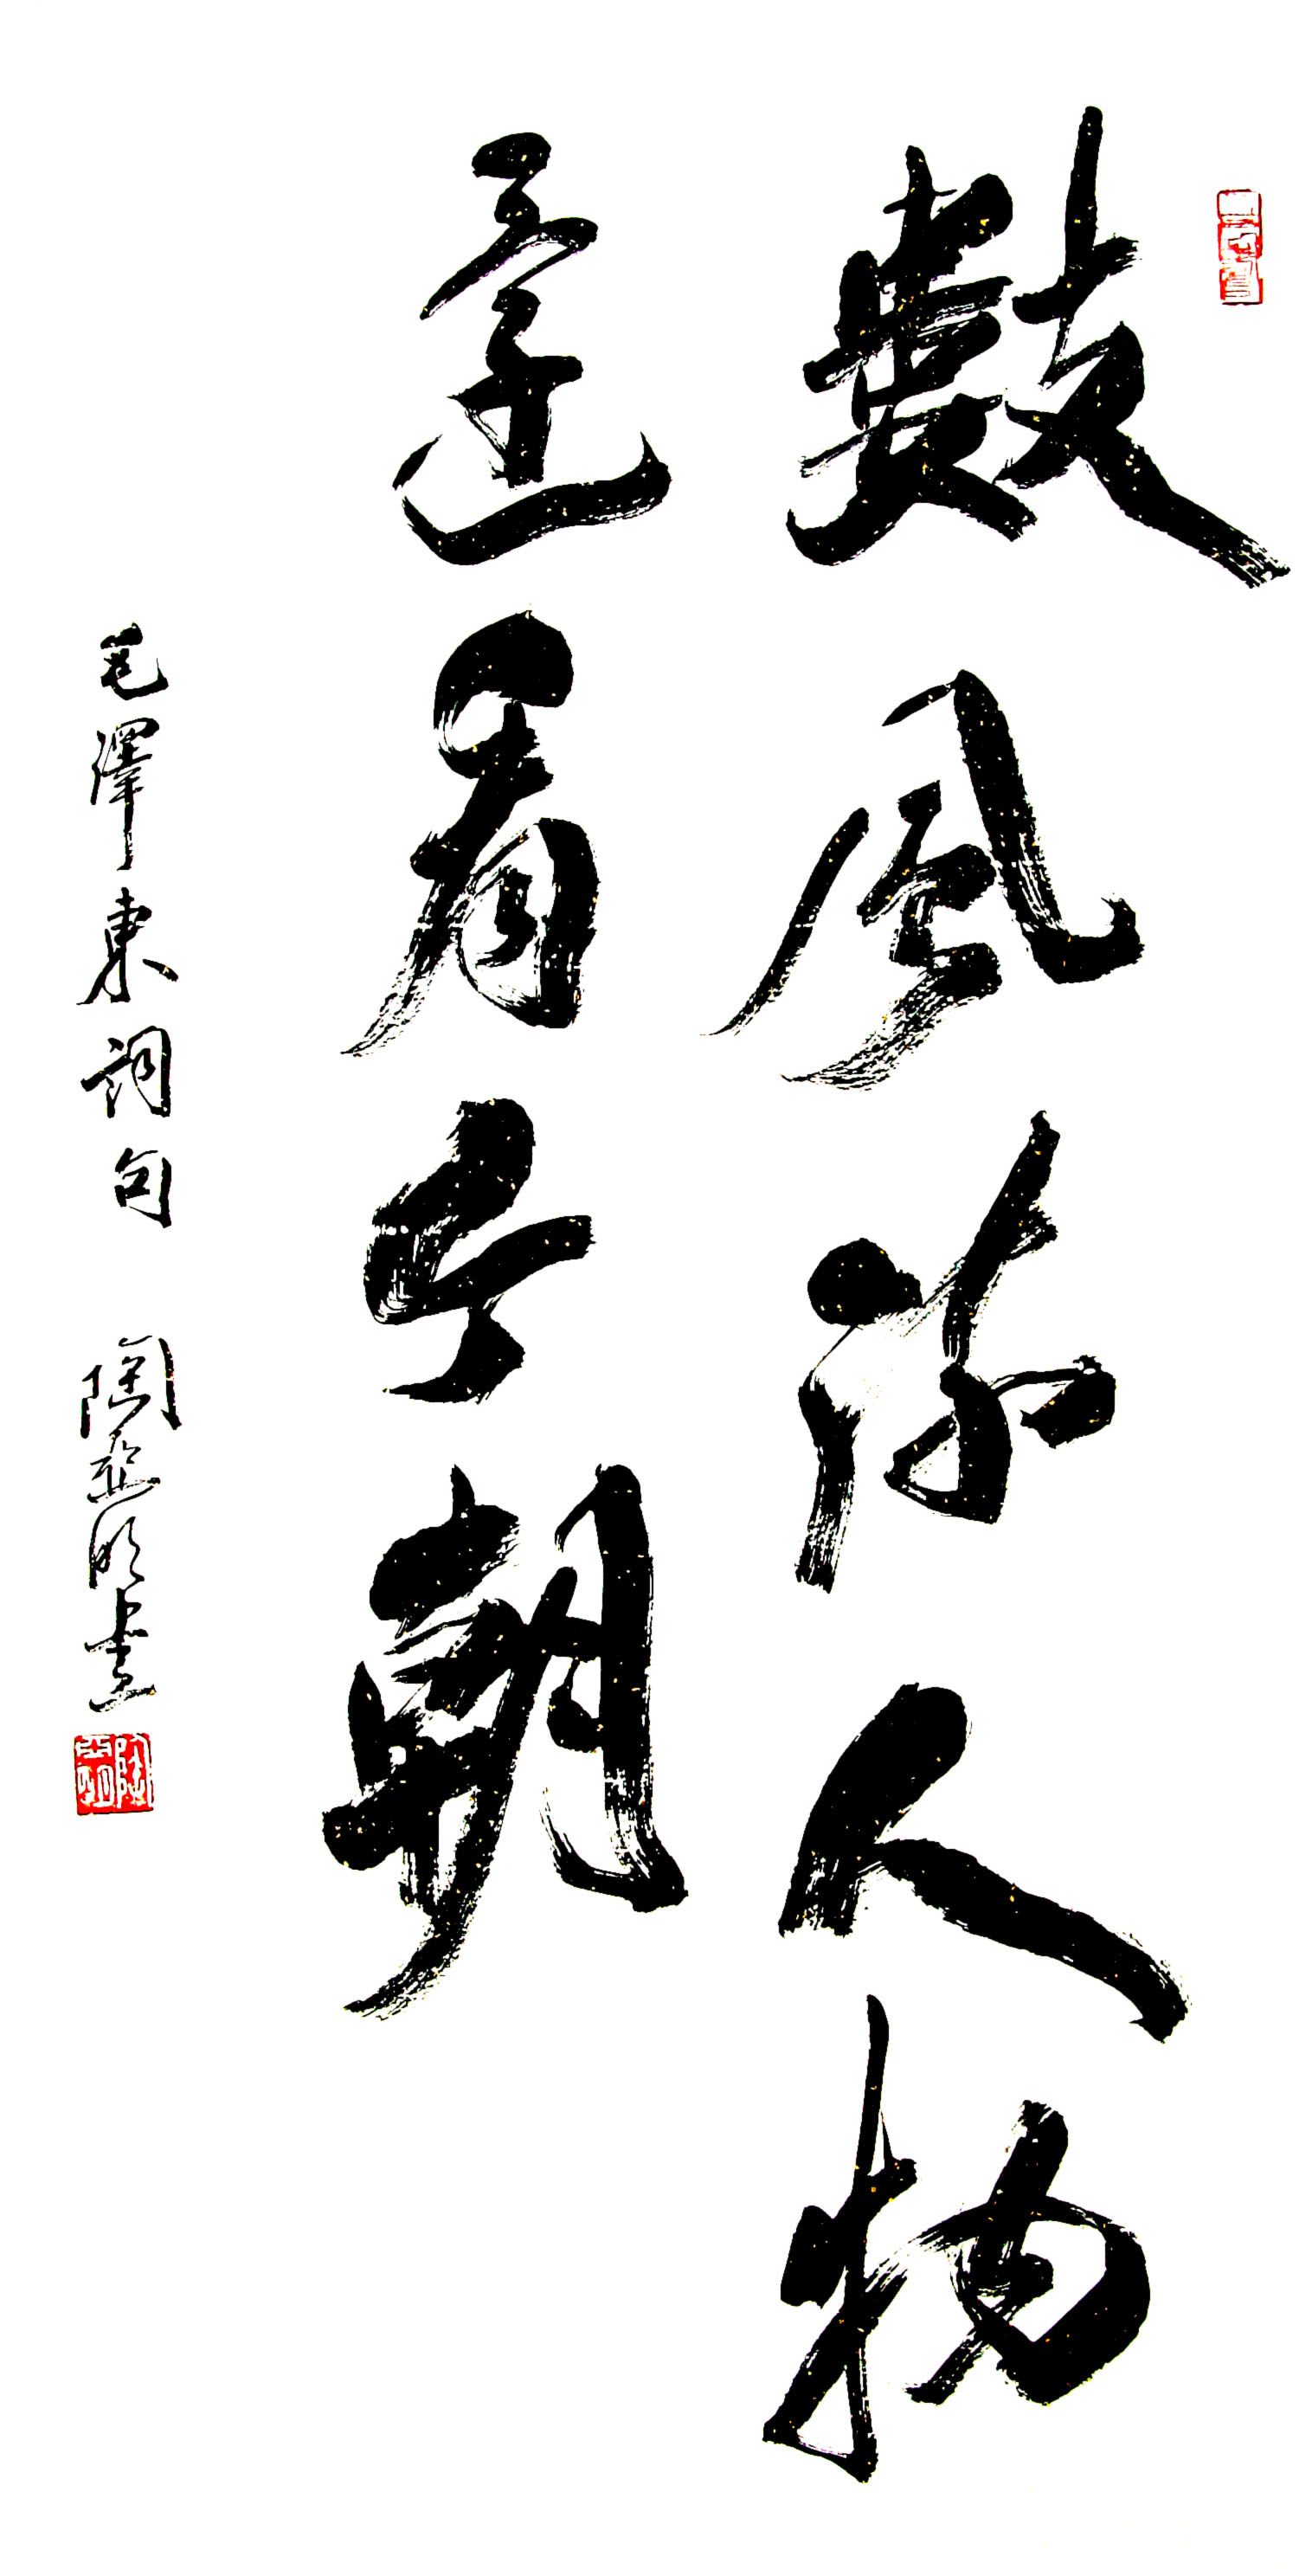 數風流人物
還看今朝
毛澤東詞句 陶亞明書